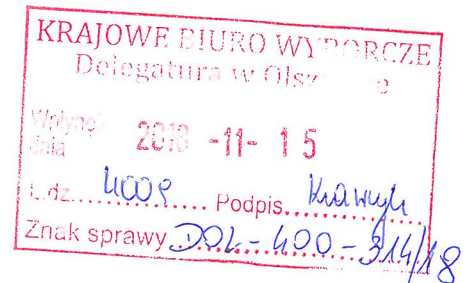 KRAJOWE BIURO WYBORCZE
Delegatura w Olsztynie
Wpłynęło
dnia 2018 -11- 15
L.dz. ........ Podpis..................
Znak sprawy DOL-400-314/18